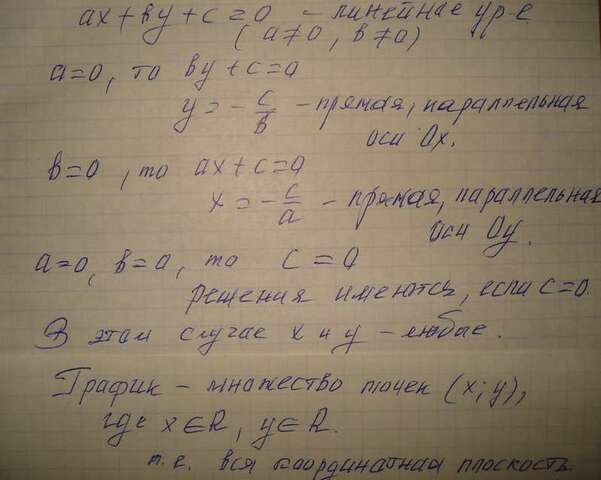 ax + by + c = 0 – линейное ур-е
(a≠0, b≠0)
a=0, то by + c = 0
y = -c/b – прямая, параллельная
оси Ox.
b=0, то ax + c = 0
x = -c/a – прямая, параллельная
оси Oy.
a=0, b=0, то c = 0
решения имеются, если c=0.
В этом случае x и y – любые.
График – множество точек (x; y),
где x∈R, y∈R.
т.е. вся координатная плоскость